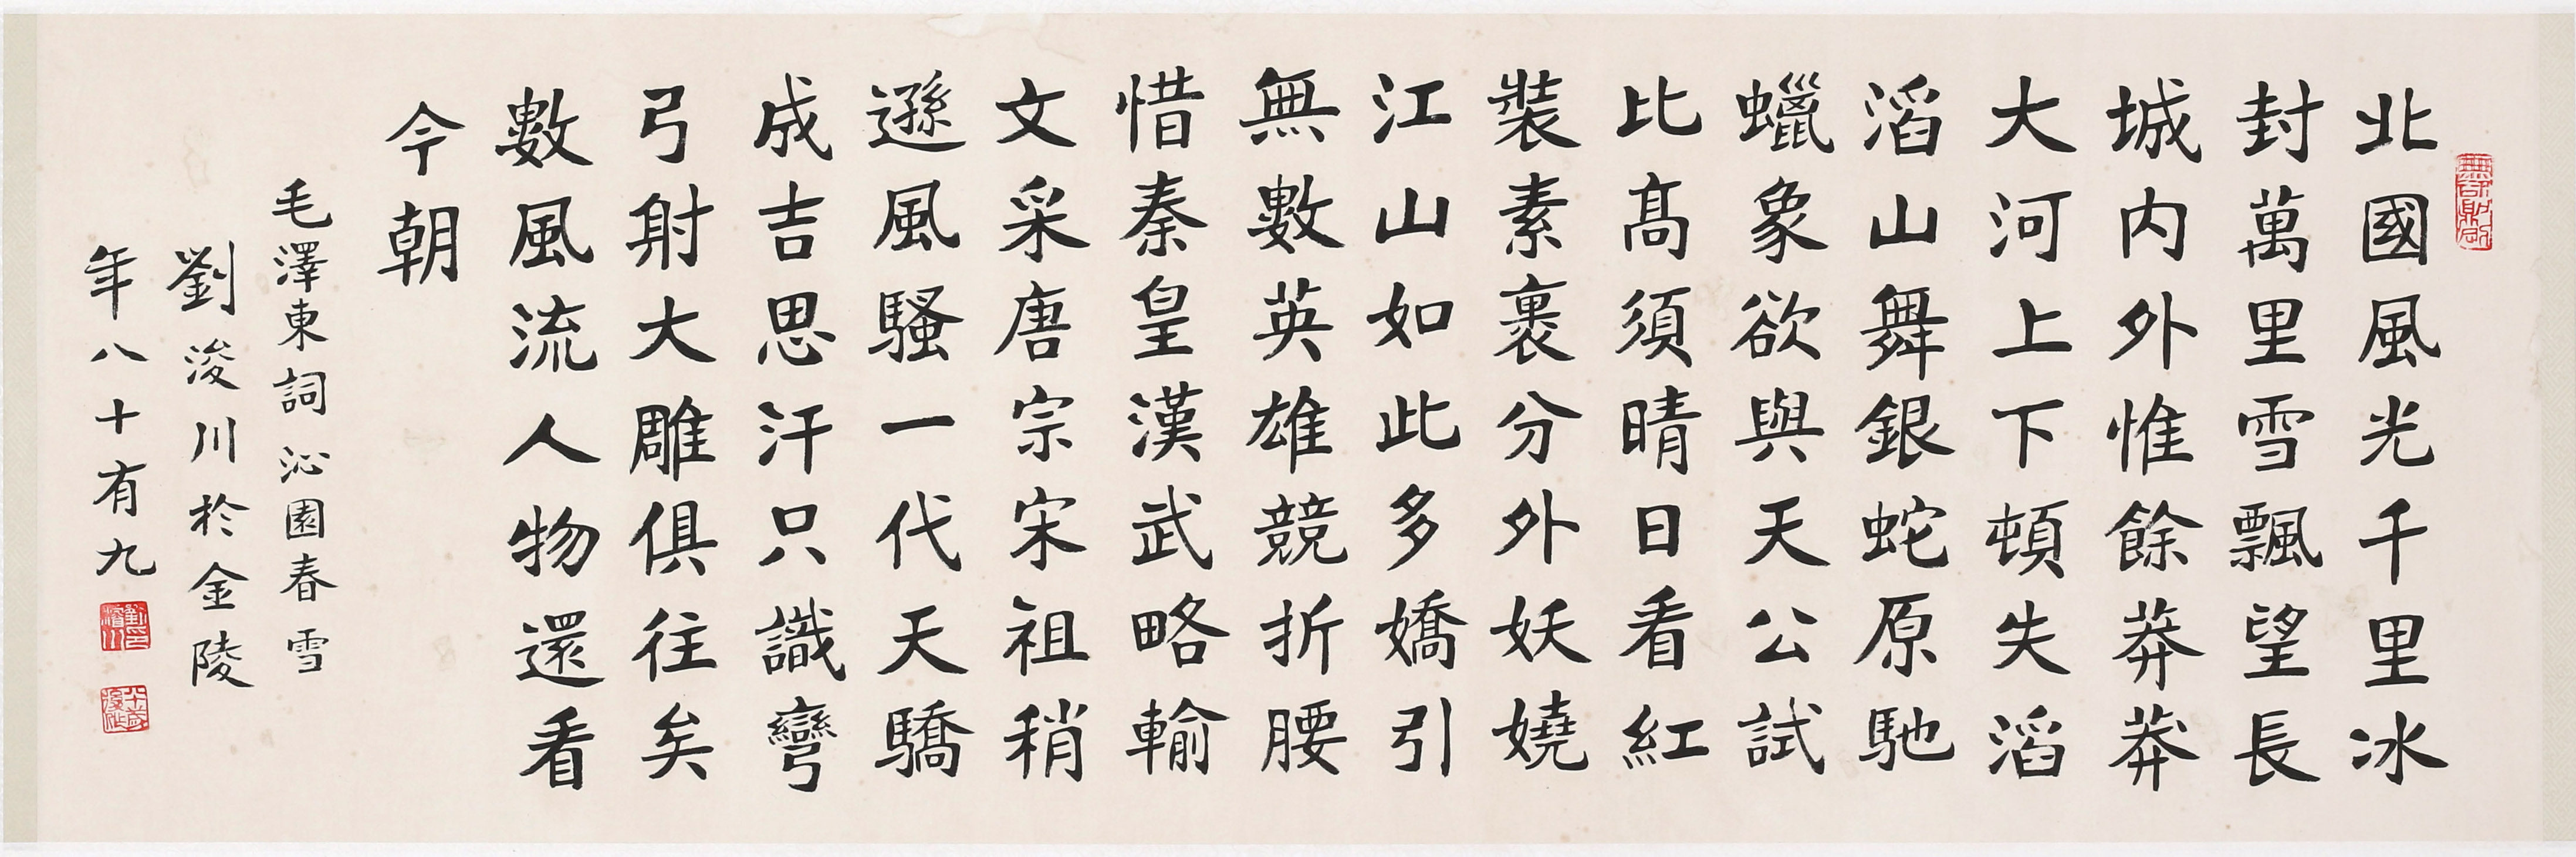 北國風光千里冰
封萬里雪飄望長
城内外惟餘莽莽
大河上下頓失滔
滔山舞銀蛇原馳
蠟象欲與天公試
比髙須晴日看紅
裝素裹分外妖嬈
江山如此多嬌引
無數英雄競折腰
惜秦皇漢武略輸
文采唐宗宋祖稍
遜風騷一代天驕
成吉思汗只識彎
弓射大雕俱往矣
數風流人物還看
今朝
毛澤東詞 沁園春 雪
劉浚川於金陵
年八十有九